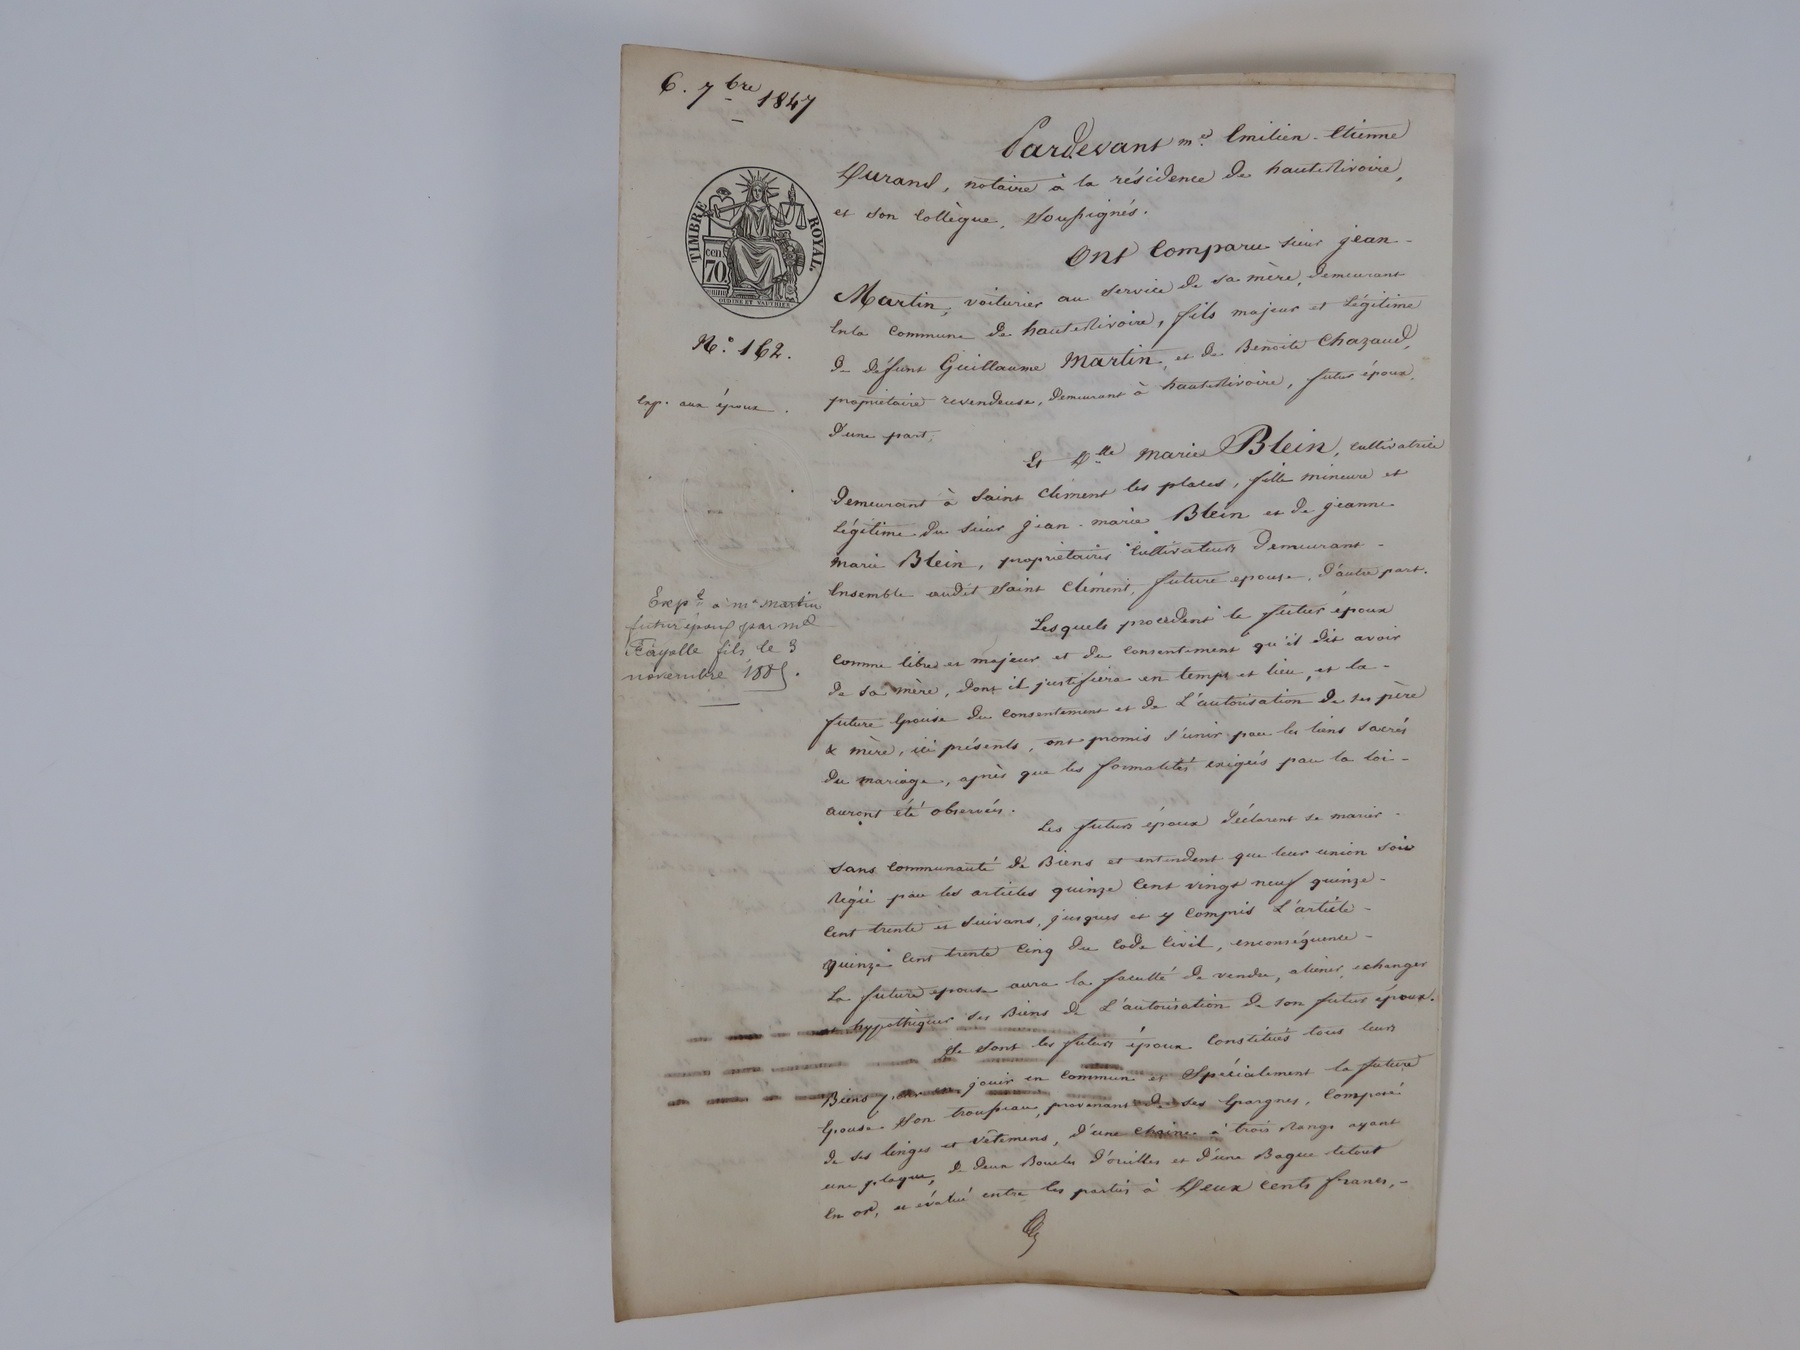 6. 7bre 1847
TIMBRE ROYAL.
cen.
70.
N.° 162.
Exp. aux époux.
Expe. a me Martin
futur époux par md
Fayolle fils le 3
novembre
Pardevant me. Emilien-Etienne
Durand, notaire à la résidence de hauteRivoire,
et son Collègue, Soussignés.
Ont Comparu sieur jean-
Martin, voiturier au service de sa mère, demeurant
Enla Commune de hauteRivoire, fils majeur et Légitime
de défunt Guillaume Martin, et de Benoite Chazaud,
propriétaire revendeuse, demeurant à hauteRivoire, futur époux,
d'une part,
Et Dlle Marie Blein, cultivatrice
demeurant à Saint Clément les places, fille mineure et
Légitime du sieur jean-marie Blein et de jeanne
marie Blein, propriétaires Cultivateurs demeurant-
Ensemble audit Saint Clément, future epouse, d'autre part.
Lesquels procèdent le futur époux
Comme libre et majeur et du Consentement qu'il dit avoir
de sa mère, dont il justifiera en temps et lieu, et la-
future Epouse du Consentement et de L'autorisation de ses père
& mère, ici présents, ont promis s'unir par les liens sacrés
du mariage, après que les formalités exigées par la loi-
auront été observées.
Les futurs époux déclarent se marier-
Sans Communauté de Biens et entendent que leur union soit
Régie par les articles quinze Cent vingt neuf quinze-
Cent trente et suivans, jusques et y Compris L'article-
quinze Cent trente Cinq du Code Civil, enconséquence-
La future epouse aura la faculté de vendre, aliéner, echanger
et hypothéquer ses Biens de L'autorisation de son futur époux.
Se sont les futurs époux Constitués tous leurs
Biens pour en jouir en Commun et Spécialement la future
Epouse Son trousseau, provenant de ses Epargnes, Composé
de ses linges et vêtemens, d'une chaine à trois Rangs ayant
une plaque, de deux Boucles d'oreilles et d'une Bague letout
En or, et évalué entre les parties à Deux Cents francs,-